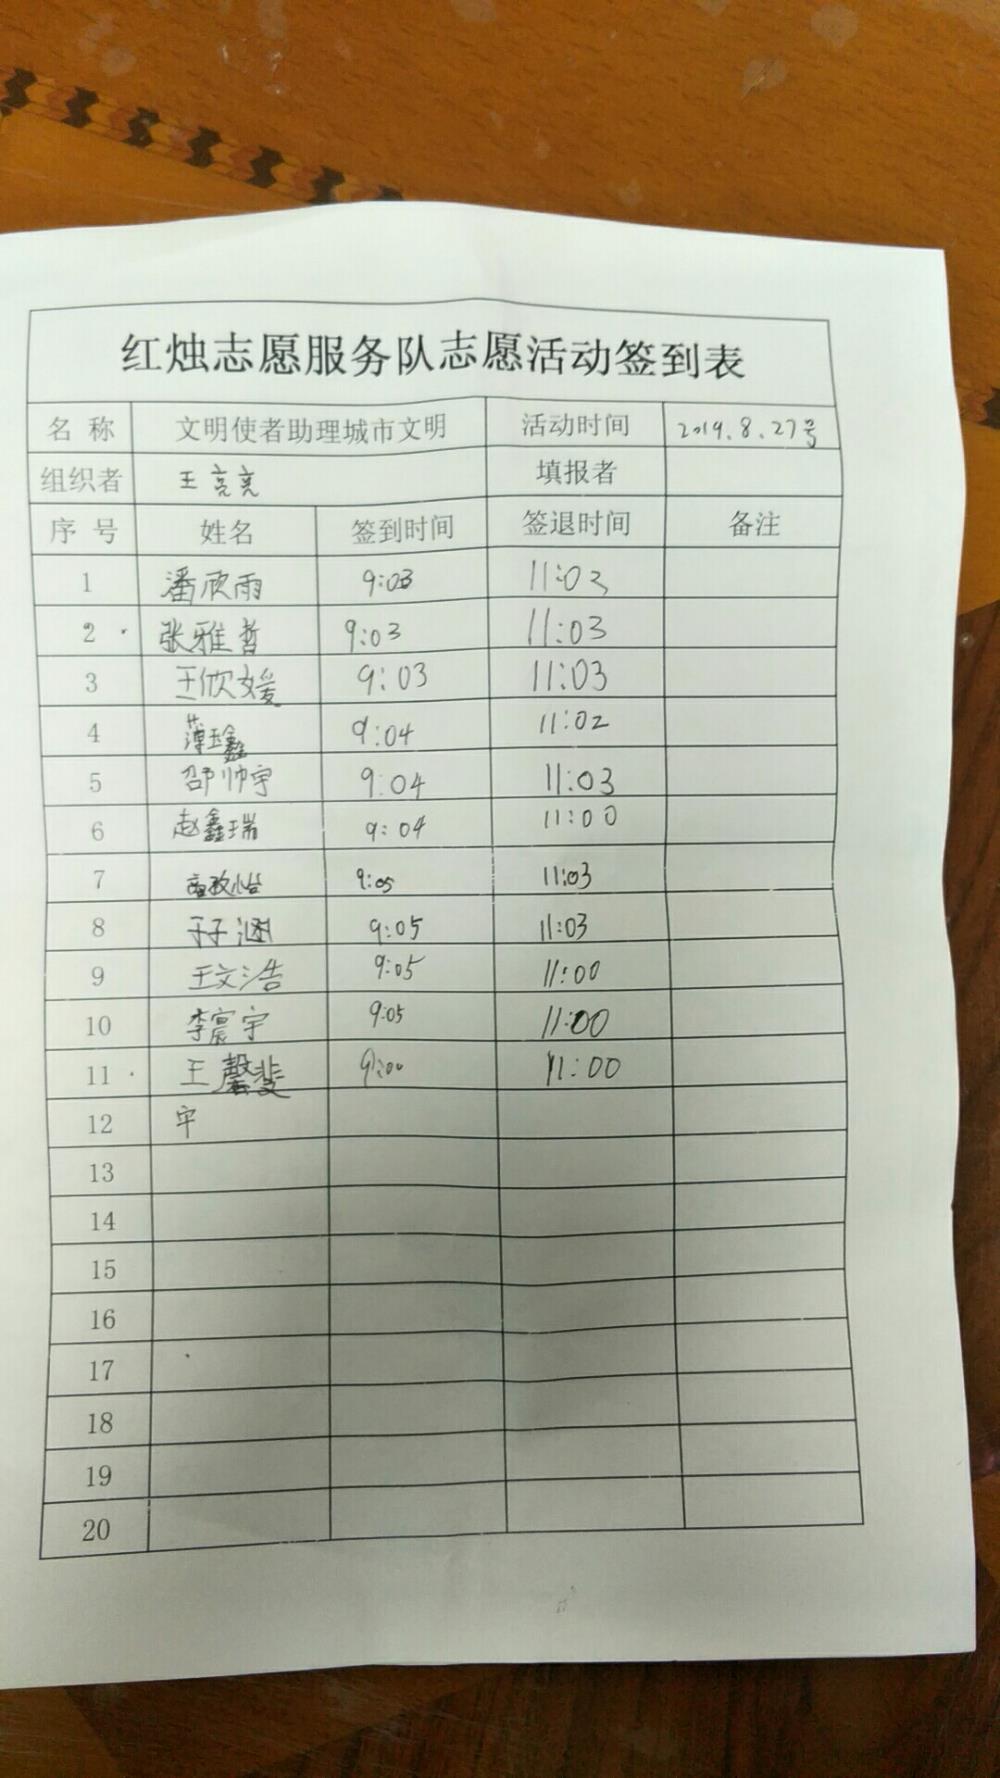 红烛志愿服务队志愿活动签到表
名 称 文明使者助理城市文明 活动时间 2019.8.27号
组织者 王亮亮 填报者
序 号 姓名 签到时间 签退时间 备注
1 潘欣雨 9:03 11:03
2 张雅哲 9:03 11:03
3 王欣媛 9:03 11:03
4 薄珏鑫 9:04 11:02
5 邵帅宇 9:04 11:03
6 赵鑫瑞 9:04 11:00
7 9:05 11:03
8 于子涵 9:05 11:03
9 王文浩 9:05 11:00
10 李宸宇 9:05 11:00
11 王馨斐 9:00 11:00
12
13
14
15
16
17
18
19
20